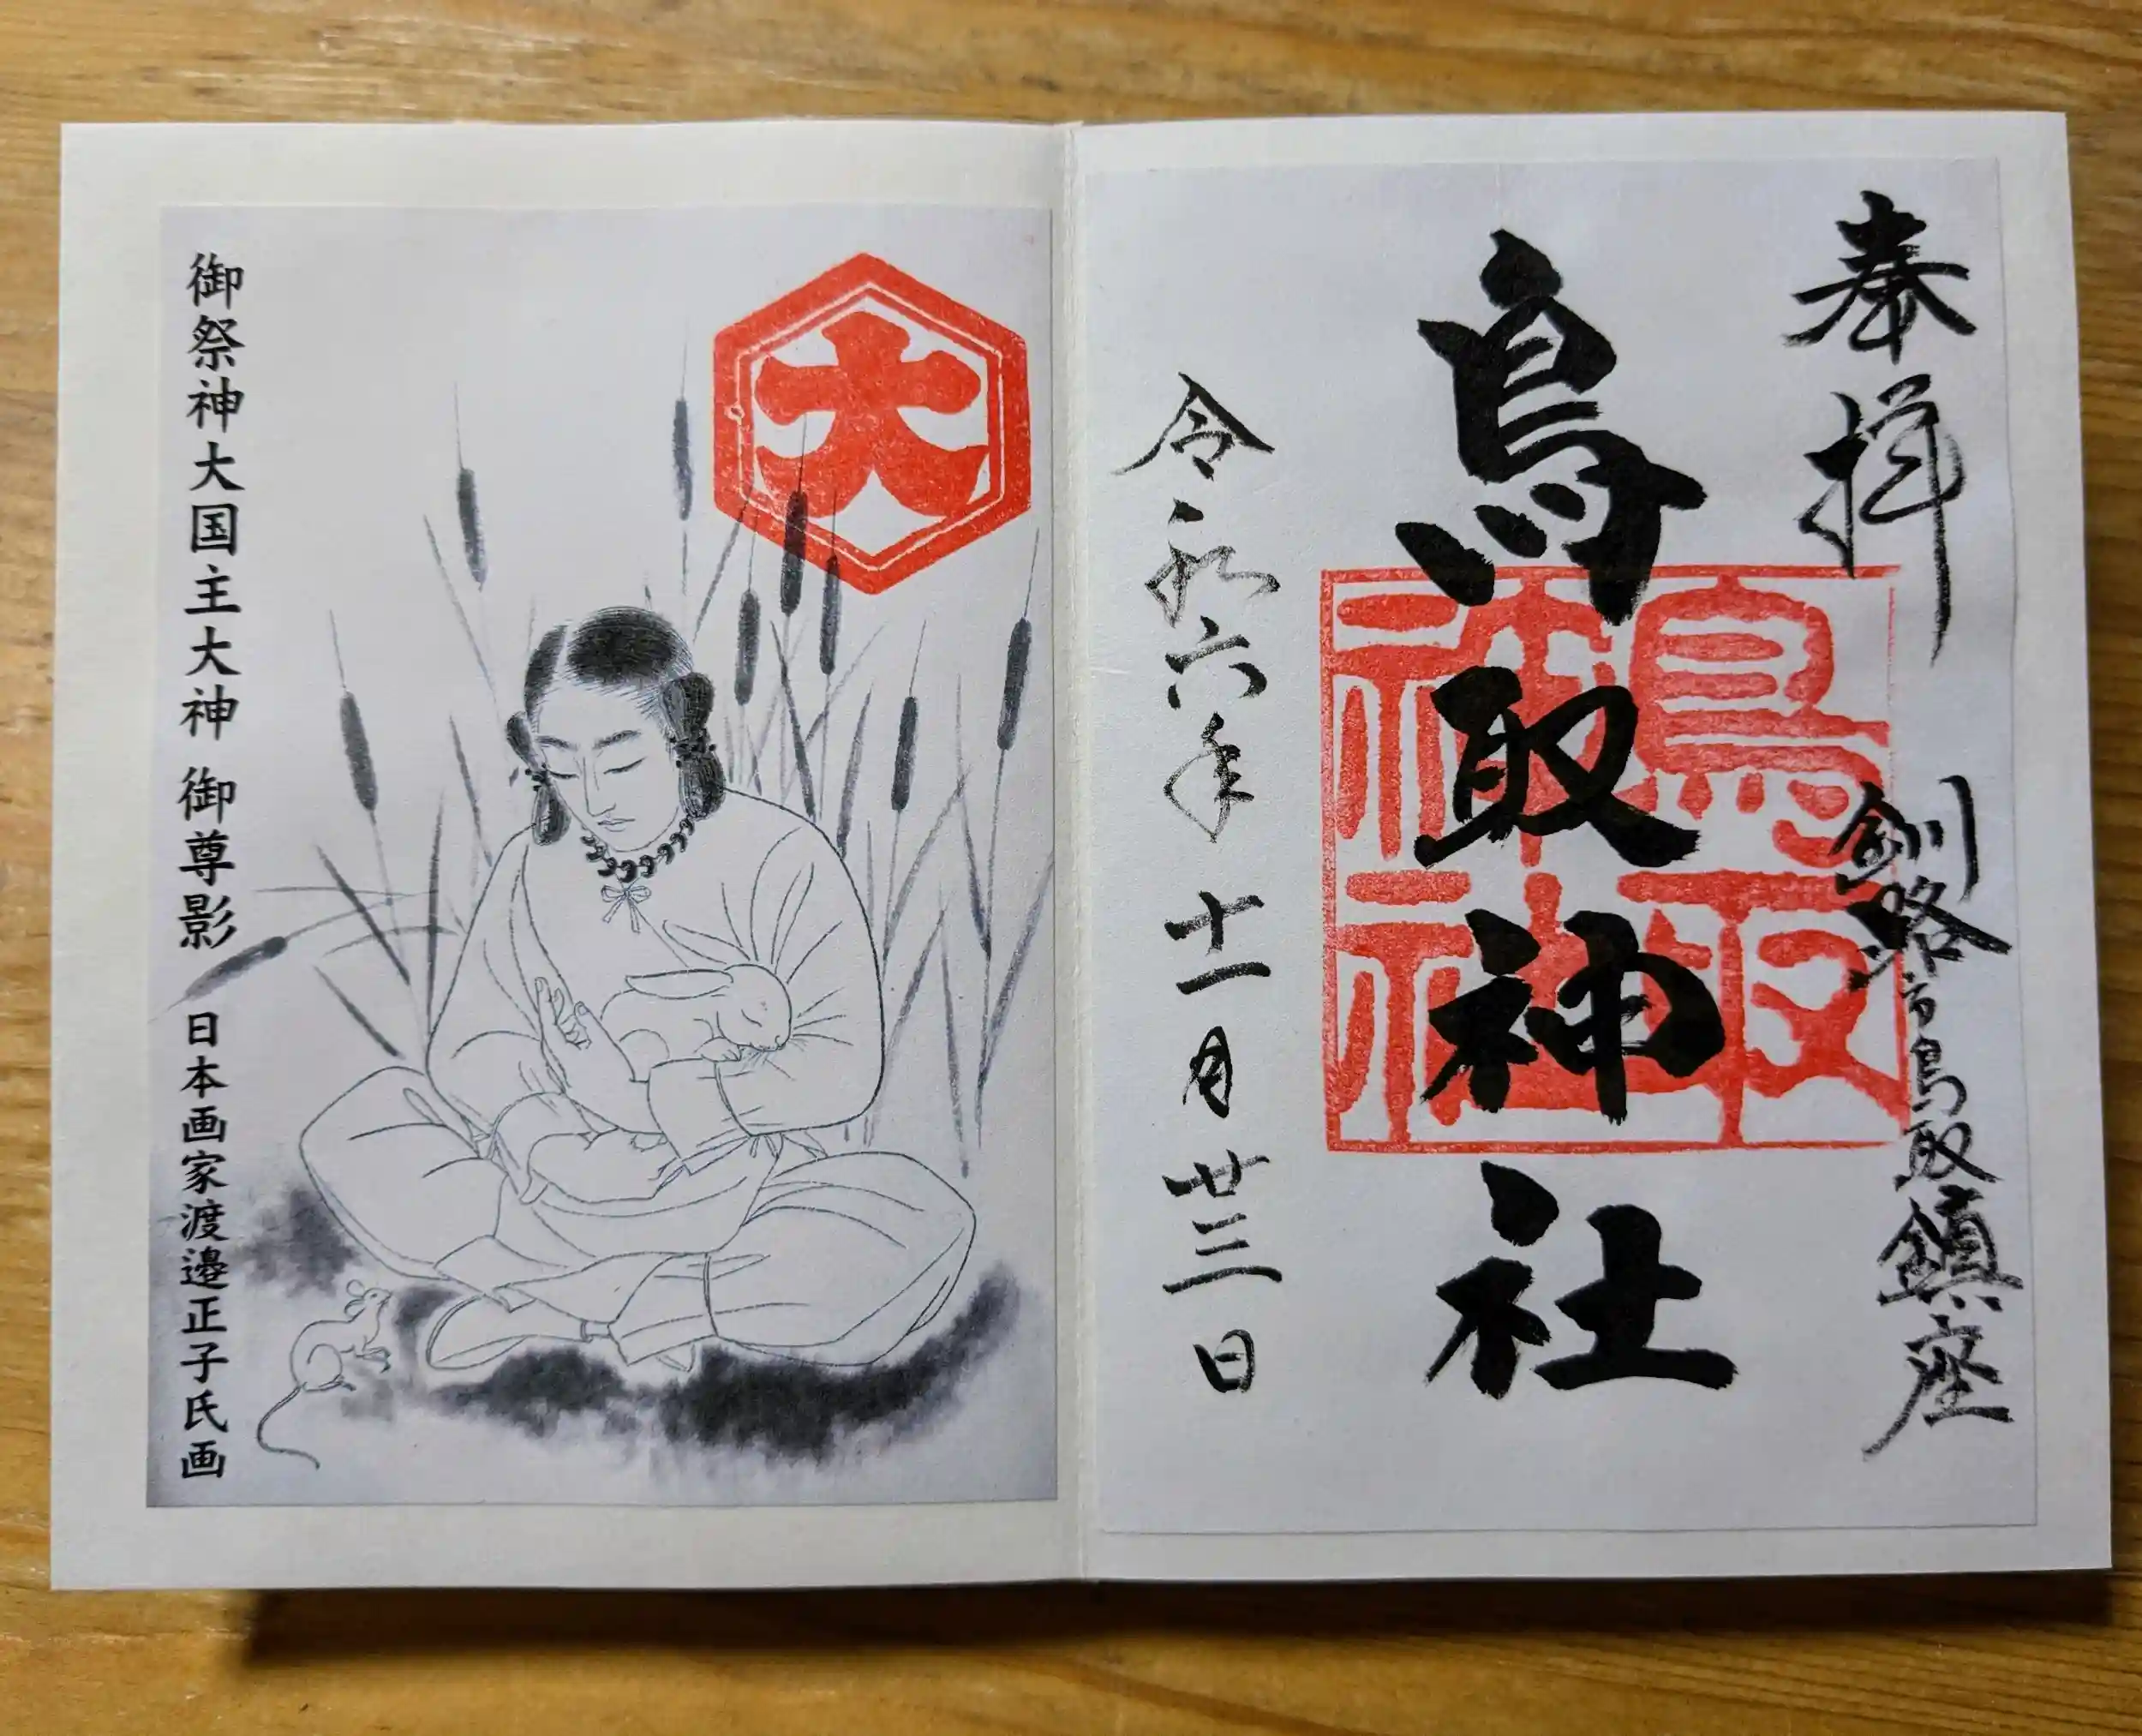 奉拝
釧路市鳥取鎮座
鳥取神社
鳥取神社
令和六年十一月廿三日
大
御祭神大国主大神 御尊影
日本画家渡邉正子氏画